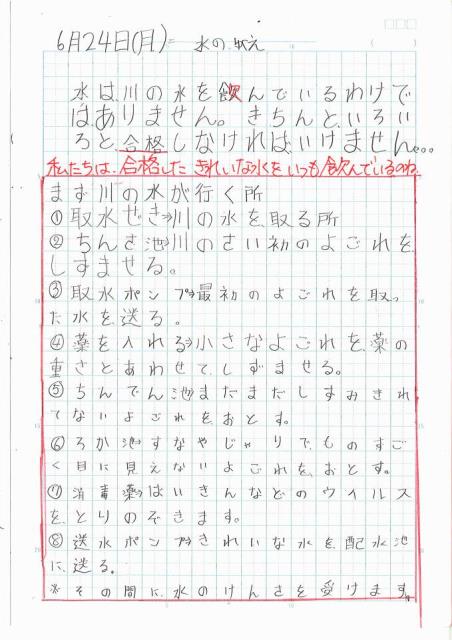 6月24日(月) 水のゆくえ
水は川の水を飲んでいるわけで
はありません。きちんといろい
ろと合格しなければいけません…
私たちは、合格したきれいな水をいつも飲んでいるのね。
まず川の水が行く所
①取水せき⇒川の水を取る所
②ちんさ池⇒川のさい初のよごれを
しずませる。
③取水ポンプ⇒最初のよごれを取っ
た水を送る。
④薬を入れる⇒小さなよごれを薬の
重さとあわせて、しずませる。
⑤ちんでん池まだまだしずみきれ
てないよごれをおとす。
⑥ろか池⇒すなやじゃりでものすご
く目に見えないよごれをおとす。
⑦消毒薬⇒ばいきんなどのウイルス
をとりのぞきます。
⑧送水ポンプ⇒きれいな水を配水池
に送る。
※その間に水のけんさを受けます。